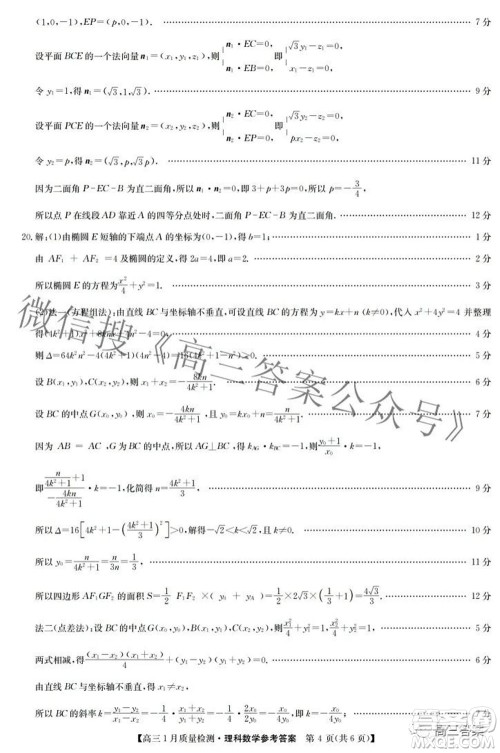 (1,0,-1),EP=(p,0,-1). 7分
设平面 BCE 的一个法向量 n₁=(x₁,y₁,z₁),则{n₁·EC=0, n₁·EB=0,即{√3y₁-z₁=0, x₁-z₁=0,
令 y₁=1,得 n₁=(√3,1,√3). 9分
设平面 PCE 的一个法向量 n₂=(x₂,y₂,z₂),则{n₂·EC=0, n₂·EP=0,即{√3y₂-z₂=0, px₂-z₂=0,
令 y₂=p,得 n₂=(√3,p,√3p). 11分
因为二面角 P-EC-B 为直二面角,所以 n₁·n₂=0,即 3+p+3p=0,所以 p=-3/4,
所以点 P 在线段 AD 靠近 A 的四等分点处时,二面角 P-EC-B 为直二面角. 12分
20.解:(1)由椭圆 E 短轴的下端点 A 的坐标为(0,-1),得 b=1; 1分
由 AF₁ + AF₂ =4 及椭圆的定义,得 2a=4,即 a=2. 2分
所以椭圆 E 的方程为 x²/4+y²=1. 3分
(2)法一(方程组法):由直线 BC 与坐标轴不垂直,可设直线 BC 的方程为 y=kx+n(k≠0),代入 x²+4y²=4 并整理
得(4k²+1)x²+8knx+4n²-4=0. 4分
则 5分
设 B(x₁,y₁),C(x₂,y₂),则 x₁+x₂=-8kn/(4k²+1). 6分
设 BC 的中点 G(x₀,y₀),则 7分
因为 AB = AC ,G 为 BC 的中点,所以 AG⊥BC,得 k_AG·k_BC=-1,则 (y₀+1)/x₀·k=-1,
即 (n/(4k²+1)+1)/(-4kn/(4k²+1))·k=-1,化简得 n=(4k²+1)/3. 9分
所以 Δ=16[4k²+1-((4k²+1)/3)²]>0,解得-√2<k<√2且 k≠0. 10分
所以 y₀=n/(4k²+1)=n/3n=1/3, 11分
所以四边形 AF₁GF₂ 的面积 S=1/2 F₁F₂ ×(y₀ + y_A)=1/2×2√3×(1/3+1)=4√3/3. 12分
法二(点差法):设 B(x₁,y₁),C(x₂,y₂),BC 的中点 G(x₀,y₀),则 x₁²/4+y₁²=1,x₂²/4+y₂²=1, 4分
两式相减,得 (x₁-x₂)(x₁+x₂)/4+(y₁-y₂)(y₁+y₂)=0. 6分
由直线 BC 与坐标轴不垂直,得 x₁≠x₂,
所以 BC 的斜率 k=(y₁-y₂)/(x₁-x₂)=-(x₁+x₂)/4(y₁+y₂)=-2x₀/(4·2y₀)=-x₀/4y₀,即 7分
【高三1月质量检测·理科数学参考答案 第4页(共6页)】
微信搜《高三答案公众号》
高三答案